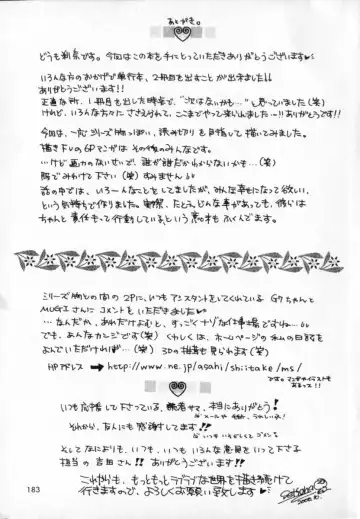 あとがき。
どうも刹奈です。今回はこの本を手にとっていただきありがとうございます
いろんな方のおかげで単行本、2冊目を出すことが出来ました!!
ありがとうございます!!
正直な所、1冊目を出した時点で、"次はないかも…"と思っていました(笑)
けれど、いろんな方々に ささえられて、ここまでやって来れました…!!ありがとうです!!
今回は、一応シリーズ物っぽい、読み切りを目指して描いてみました。
描き下しの6Pマンガは その後のみんなです。
…けど画力のないせいで、誰が誰だかわからないかも…(笑)
胸でみわけて下さい(笑)すみません
話の中では、いろーんなことをしてましたが、みんな幸せになって欲しい、
という気持ちで作りました。実際、たとえ、どんな事があっても、彼らは
ちゃんと責任もって行動している、という意味もふくんでます。
シリーズ物との間の2Pに、いつもアシスタントをしてくれている G7ちゃんと
MUGIさんにコメントをいただきました
…なんだか、あれだけよむと、すっごくナゾな仕事場ですねぇ…
でも、あんなカンジです(笑)くわしくは、ホームページの私の日記を
よんでいただければ…(笑) 3Dの描書も見られます(笑)
HPアドレス → http://www.ne.jp/asahi/shiitake/ms/
です。マンガやイラストも
あるヨっ!!
いつも応援して下さっている、読者サマ、本当にありがとう!
それから、友人にも感謝してます!!
いつもいそがしくてゴメン。
そしてなによりも、いつも、いつもいろんな意見をいって下さる
担当の吉田さん!!ありがとうございます!!
これからも、もっともっとラブラブな世界を描き続けて
行きますので、よろしくお願い致します
183